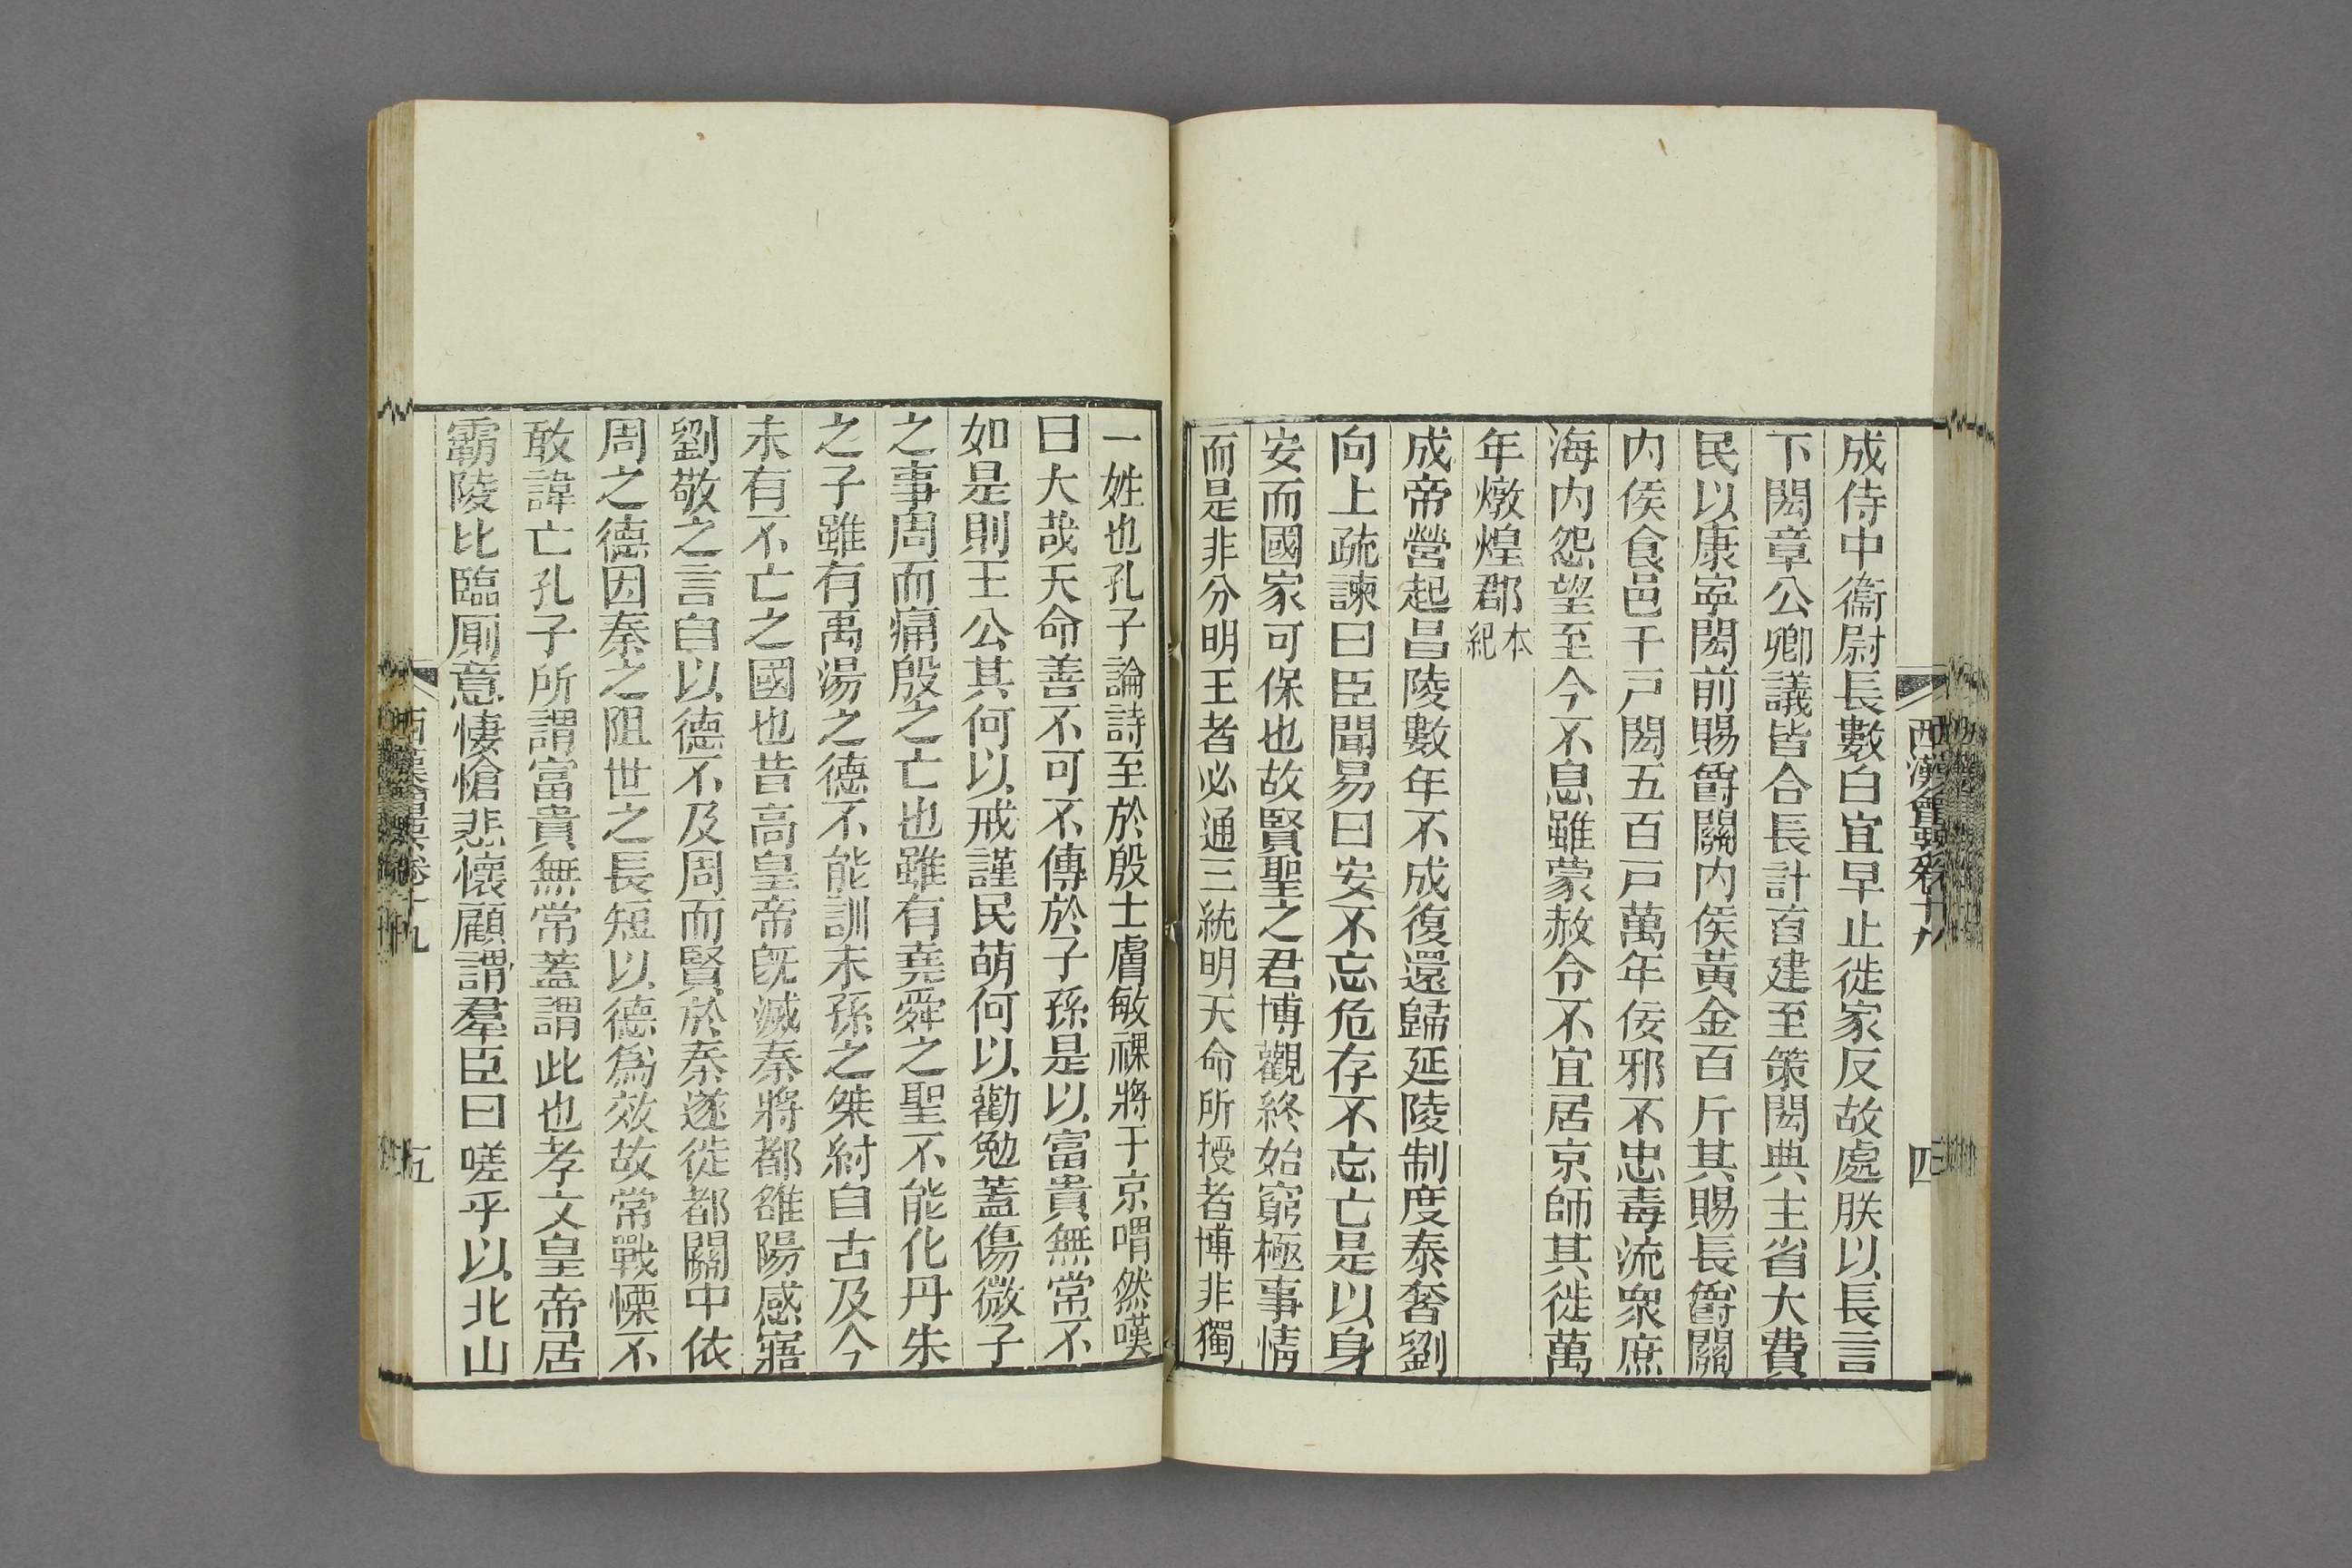 西漢會要卷十九
四
成侍中衞尉長數白宜早止徙家反故處朕以長言
下閎章公卿議皆合長計首建至策閎典主省大費
民以康寧閎前賜爵關内侯黃金百斤其賜長爵關
内侯食邑千戸閎五百戸萬年佞邪不忠毒流衆庶
海内怨望至今不息雖蒙赦令不宜居京師其徙萬
年燉煌郡本紀
成帝營起昌陵數年不成復還歸延陵制度泰奢劉
向上疏諫曰臣聞易曰安不忘危存不忘亡是以身
安而國家可保也故賢聖之君博觀終始窮極事情
而是非分明王者必通三統明天命所授者博非獨
一姓也孔子論詩至於殷士膚敏祼將于京喟然嘆
曰大哉天命善不可不傳於子孫是以富貴無常不
如是則王公其何以戒謹民萌何以勸勉蓋傷微子
之事周而痛殷之亡也雖有堯舜之聖不能化丹朱
之子雖有禹湯之德不能訓末孫之桀紂自古及今
未有不亡之國也昔高皇帝旣滅秦將都雒陽感寤
劉敬之言自以德不及周而賢於秦遂徙都關中依
周之德因秦之阻世之長短以德爲效故常戰慄不
敢諱亡孔子所謂富貴無常蓋謂此也孝文皇帝居
霸陵比臨厠意悽愴悲懷顧謂羣臣曰嗟乎以北山
西漢會要卷十九
五